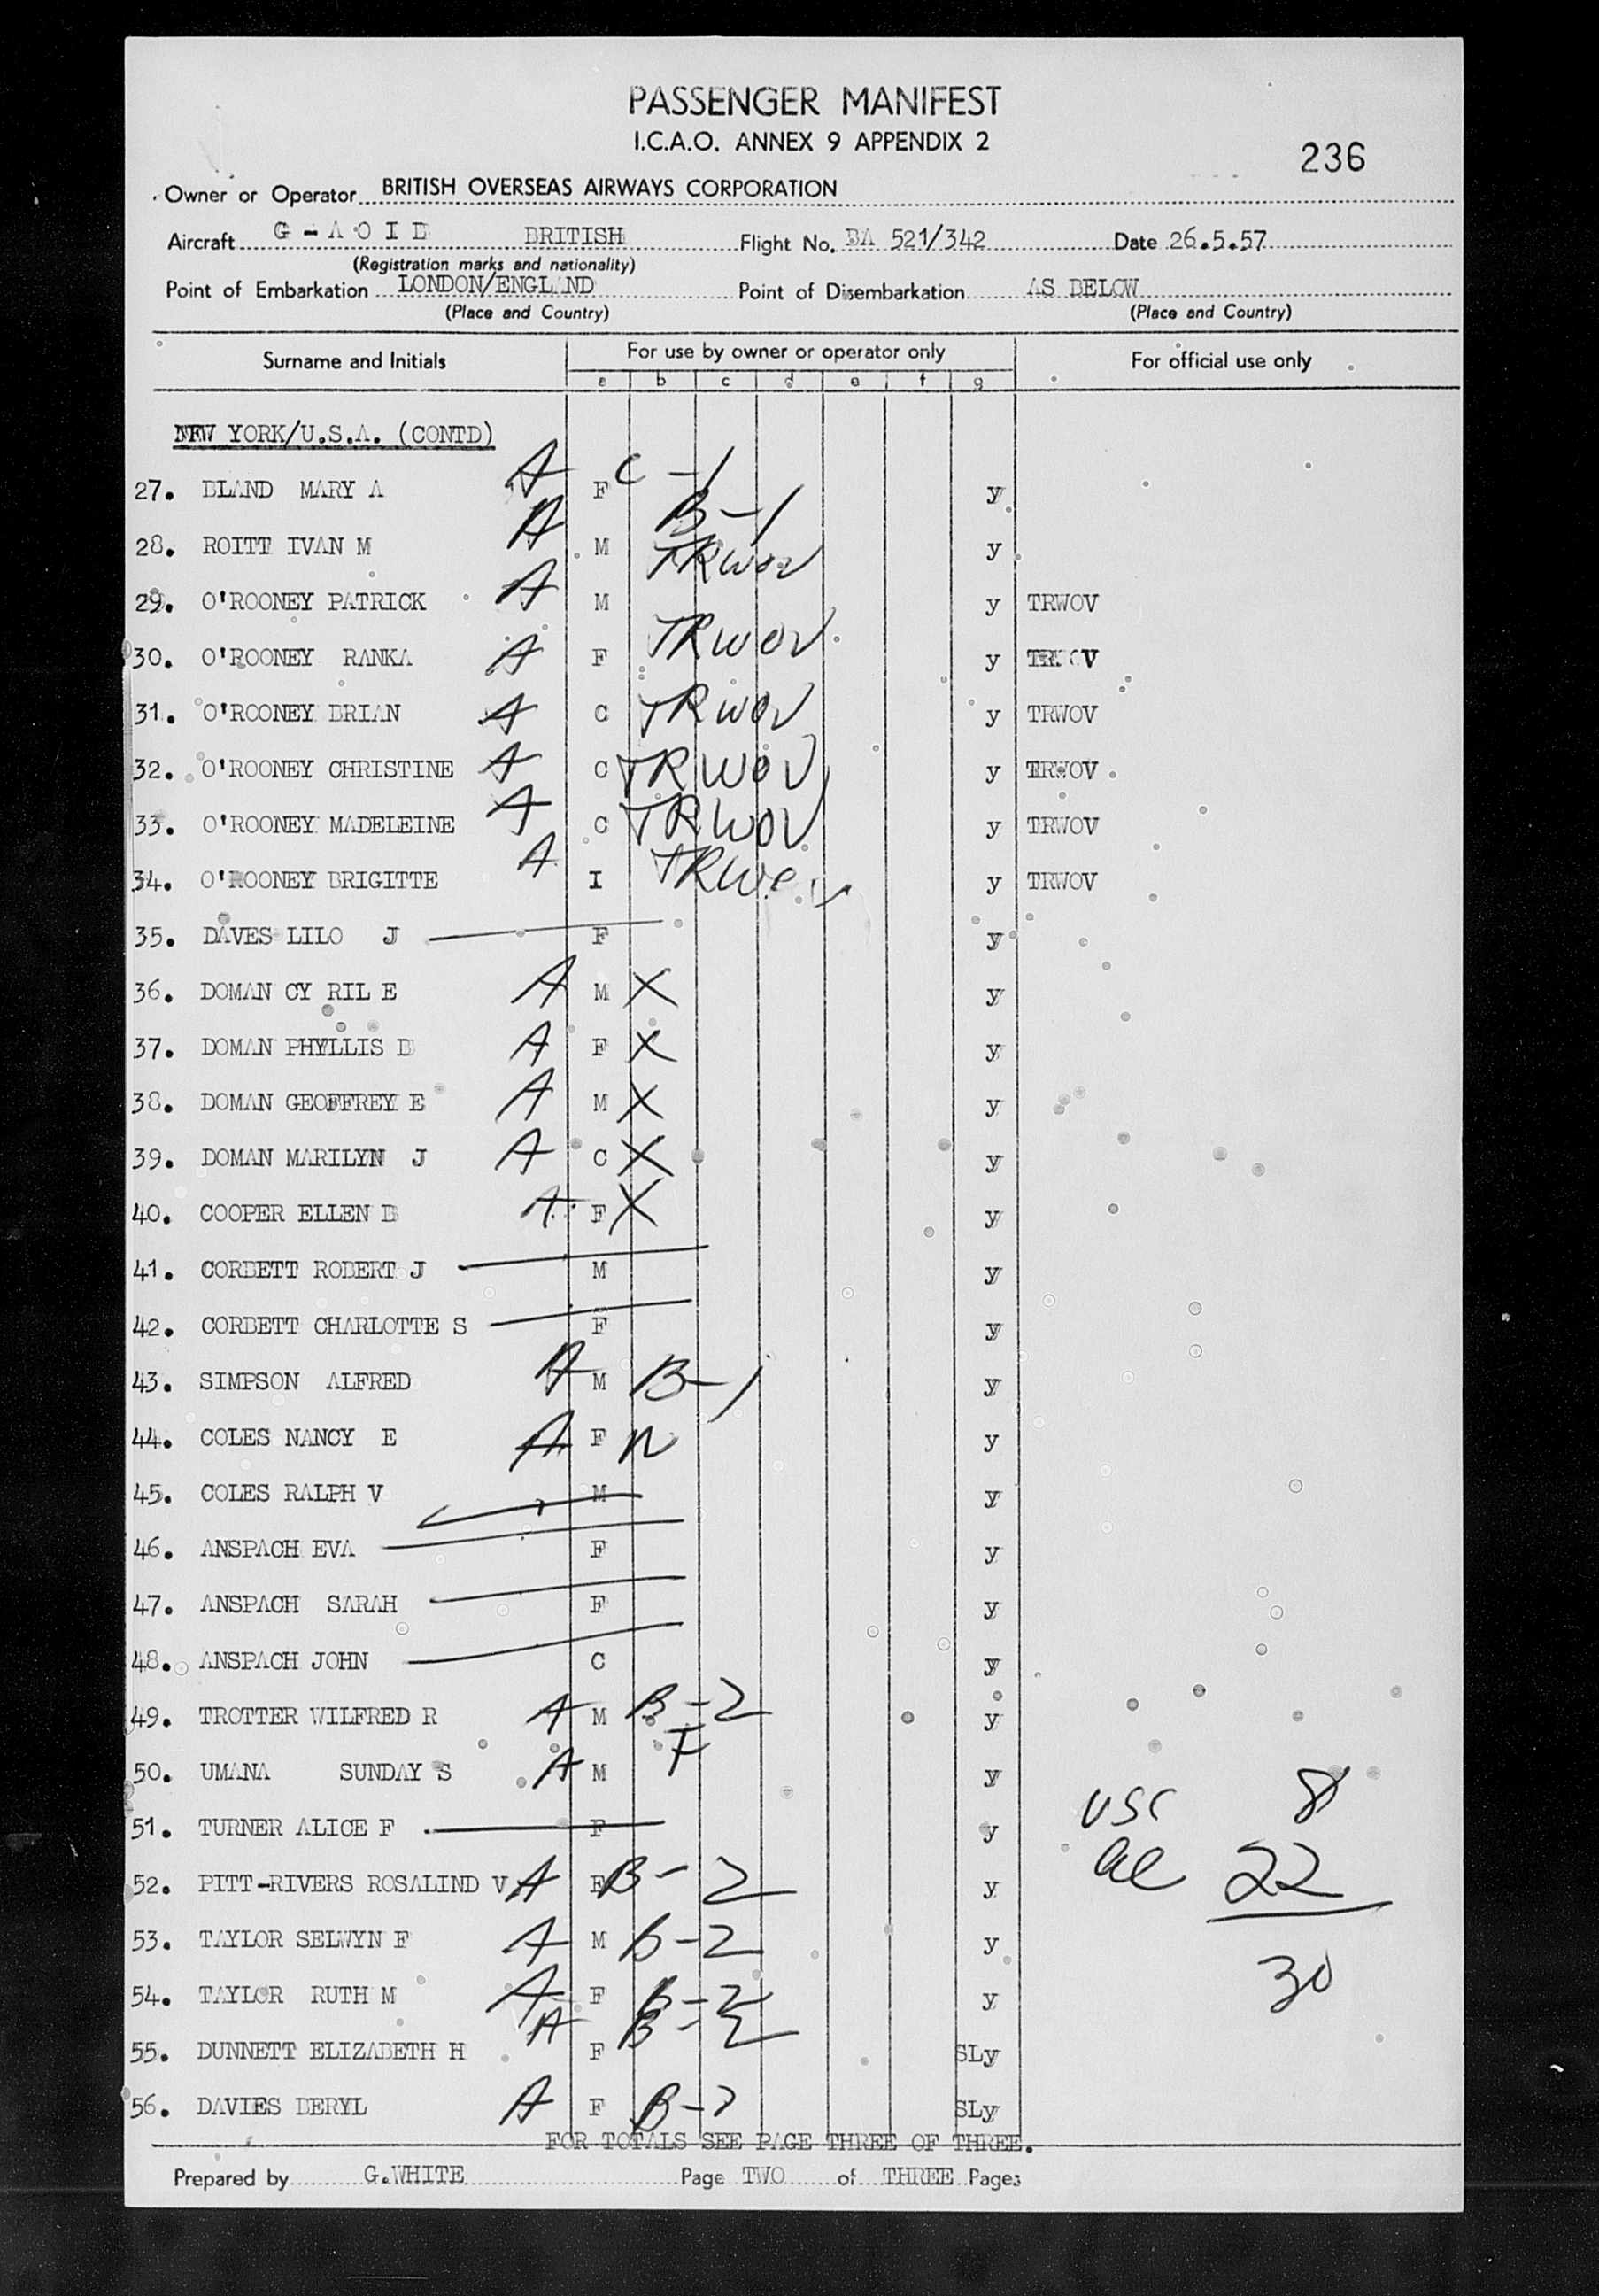 PASSENGER MANIFEST
I.C.A.O. ANNEX 9 APPENDIX 2
236
Owner or Operator BRITISH OVERSEAS AIRWAYS CORPORATION
Aircraft G - A O I D BRITISH Flight No. BA 521/342 Date 26.5.57
(Registration marks and nationality)
Point of Embarkation LONDON/ENGLAND Point of Disembarkation AS BELOW
(Place and Country) (Place and Country)
Surname and Initials For use by owner or operator only For official use only
a b c d e f g
NEW YORK/U.S.A. (CONTD)
27. BLAND MARY A A F C-1 y
28. ROITT IVAN M A M B-1 y
29. O'ROONEY PATRICK A M TRWOV y TRWOV
30. O'ROONEY RANKA A F TRWOV y TRWOV
31. O'ROONEY BRIAN A C TRWOV y TRWOV
32. O'ROONEY CHRISTINE A C TRWOV y TRWOV
33. O'ROONEY MADELEINE A C TRWOV y TRWOV
34. O'ROONEY BRIGITTE A I TRWOV y TRWOV
35. DAVES LILO J F y
36. DOMAN CY RIL E A M X y
37. DOMAN PHYLLIS D A F X y
38. DOMAN GEOFFREY E A M X y
39. DOMAN MARILYN J A C X y
40. COOPER ELLEN B A F X y
41. CORBETT ROBERT J M y
42. CORBETT CHARLOTTE S F y
43. SIMPSON ALFRED A M B-1 y
44. COLES NANCY E A F N y
45. COLES RALPH V M y
46. ANSPACH EVA F y
47. ANSPACH SARAH F y
48. ANSPACH JOHN C y
49. TROTTER WILFRED R A M B-2 y
50. UMANA SUNDAY S A M F y
51. TURNER ALICE F F y USC 8
52. PITT-RIVERS ROSALIND V A F B-2 y al 22
53. TAYLOR SELWYN F A M B-2 y
54. TAYLOR RUTH M A F B-2 y 30
55. DUNNETT ELIZABETH H A F B-2 SLy
56. DAVIES BERYL A F B-2 SLy
FOR TOTALS SEE PAGE THREE OF THREE.
Prepared by G.WHITE Page TWO of THREE Pages